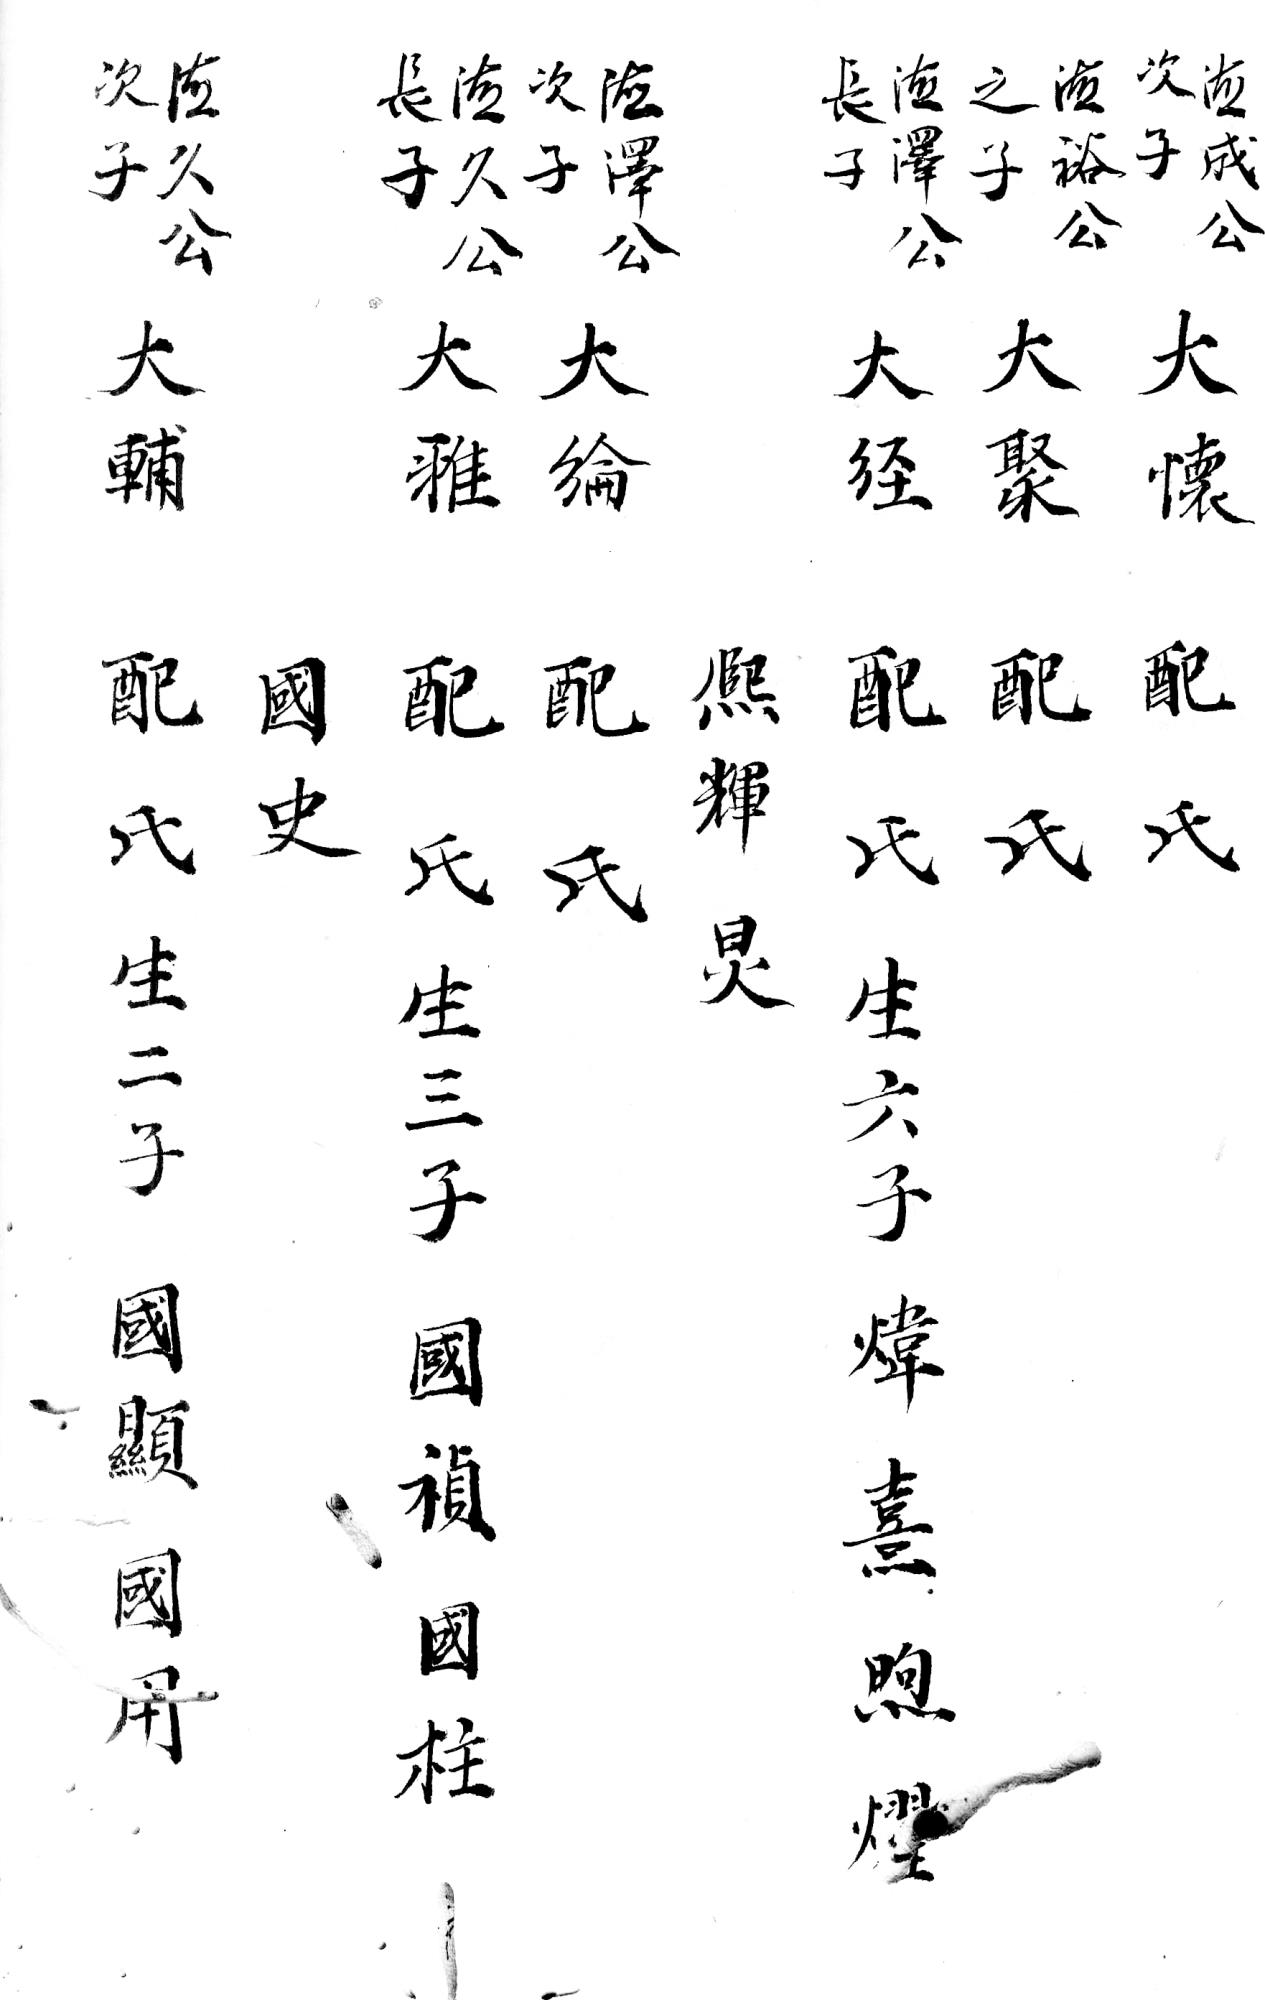 德成公
次子
大懷 配 氏
德裕公
之子
大聚 配 氏
德澤公
長子
大経 配 氏 生六子 煒 熹 煦 燿
熙 輝 炅
德澤公
次子
大綸 配 氏
德久公
長子
大雅 配 氏 生三子 國禎 國柱
國史
德久公
次子
大輔 配 氏 生二子 國顯 國用